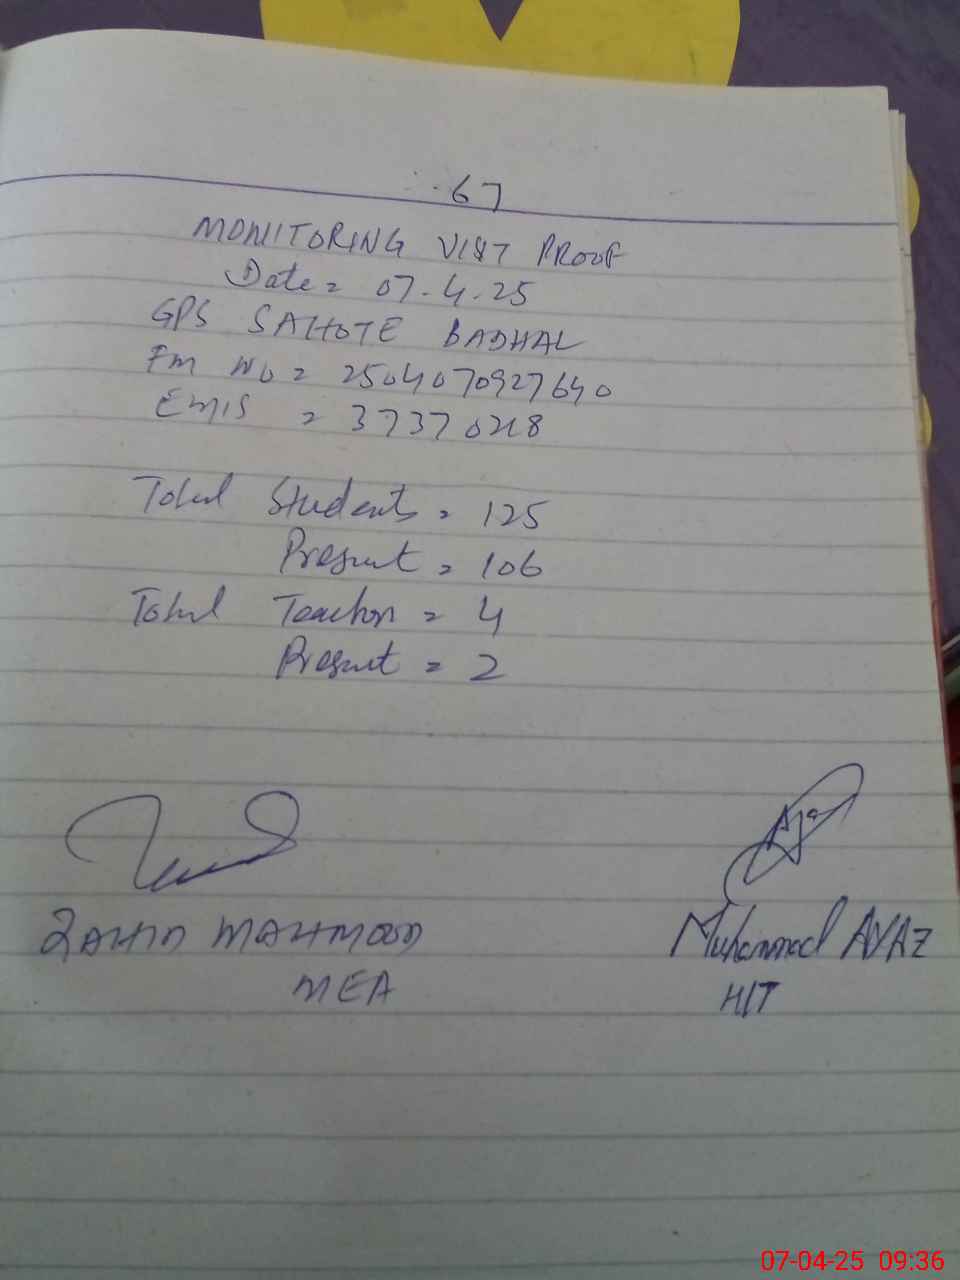 67
MONITORING VISIT PROOF
Date = 07.4.25
GPS SAHOTE BADHAL
Fm No = 2504070927640
EMIS = 37370218
Total Students = 125
Present = 106
Total Teachers = 4
Present = 2
ZAHID MAHMOOD
MEA
Muhammad AYAZ
H/T
07-04-25 09:36